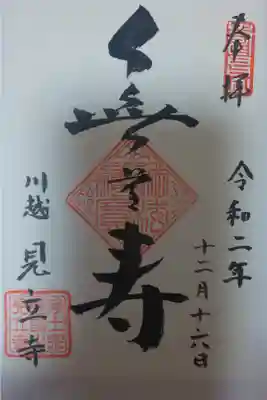 奉拝
令和二年
十二月十六日
無量寿
川越 見立寺